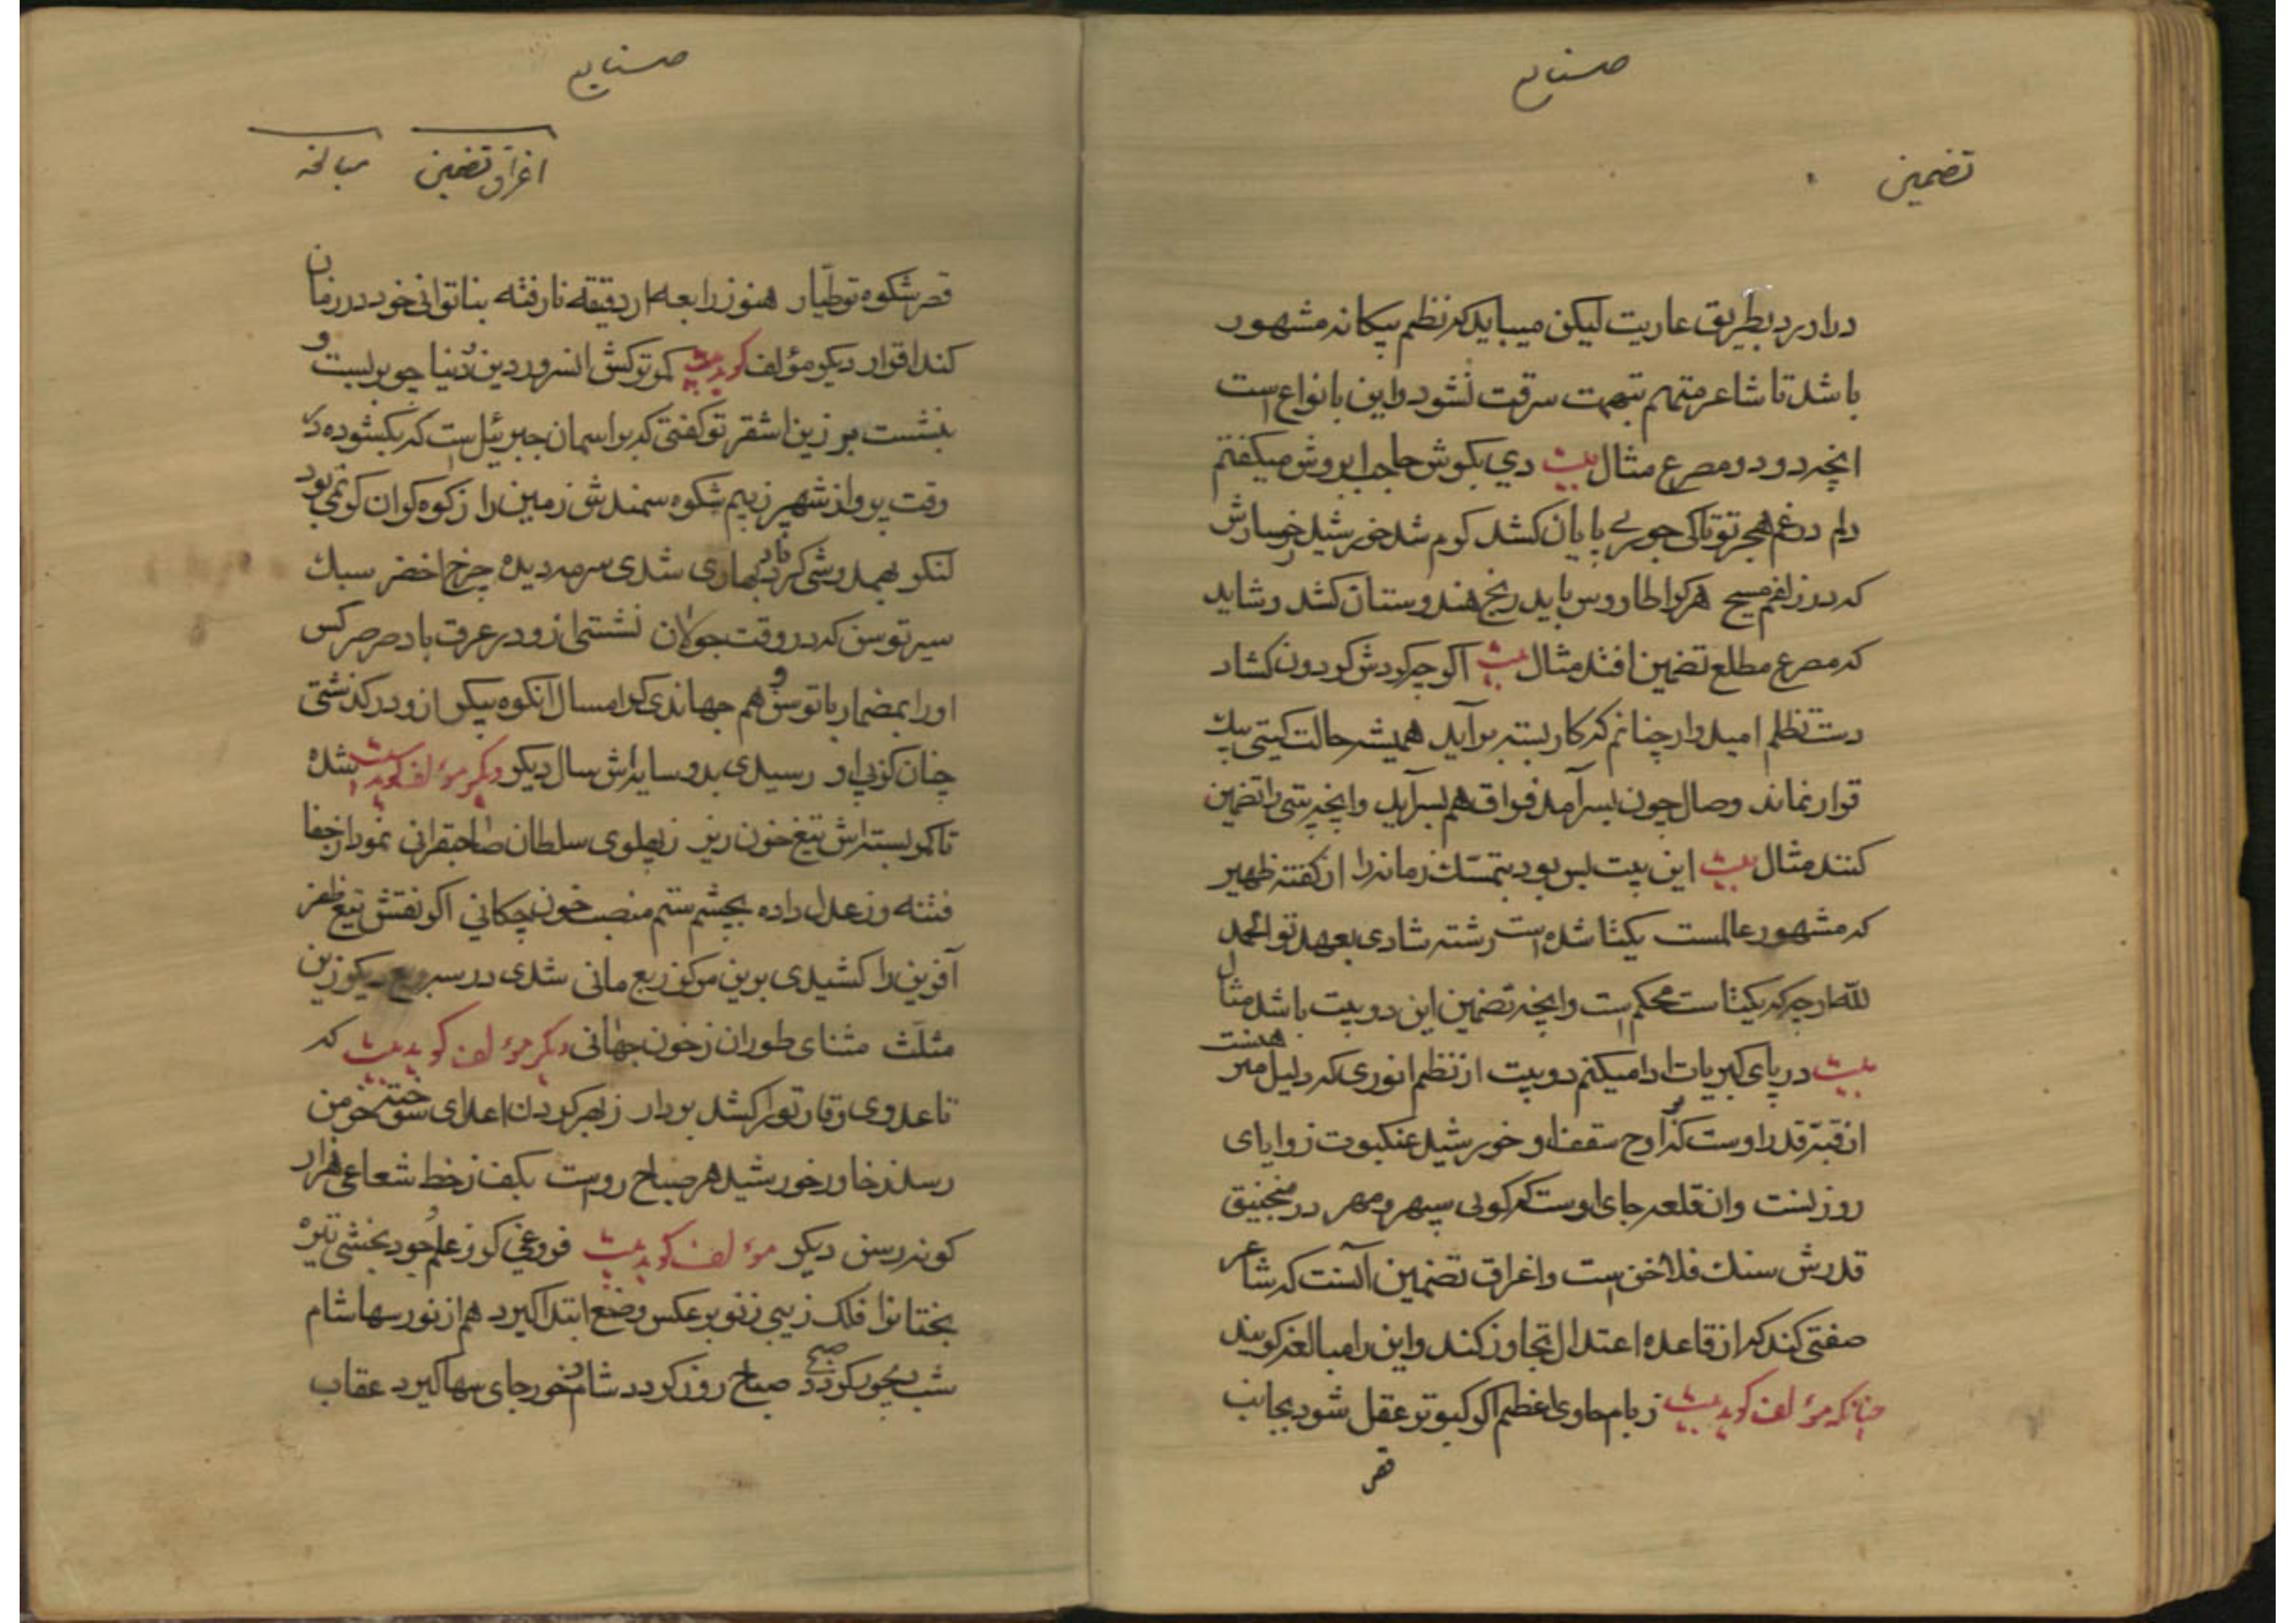 صنایع
تضمین
درآدرد بطریق عاریت لیکن میباید که نظم بیکانه مشهور
باشد تا شاعر متهم بتهمت سرقت نشود و این بانواع است
انچه در دو مصرع مثال بیت دی بکوش حاجب ابروش میکفتم
دلم در غم هجر تو تاکی جور بی پایان کشد کوم شد خورشید رخسارش
که در زلفم مسیح هر کرا طاووس باید رنج هندوستان کشد و شاید
که مصرع مطلع تضمین افتد مثال بیت اکر چه کردش کردون کشاد
دست تظلم امیدوار چنانم که کار بسته برآید همیشه حالت کیتی بیک
قرار نماند وصال چون بسرآمد فراق هم بسرآید وانچه بیتی را تضمین
کنند مثال بیت این بیت بس بود بتمسک زمانه را از کفته ظهیر
که مشهور عالمست یکتا شده است رشته شادی بعهد تو الحمد
لله ار چه که یکتاست محکم است وانچه تضمین این دو بیت باشد مثال
بیت در پای کبریات ادا میکنم دو بیت از نظم انوری که دلیل مبرهنست
از قبه قدر اوست کز اوج سقف او خورشید عنکبوت زوایای
روزنست وان قلعه جای اوست که کوئی سپهر و مهر در منجنیق
قدرش سنک فلاخن است و اغراق تضمین آنست که شاعر
صفتی کند که از قاعده اعتدال تجاوز کند و این را مبالغه کویند
چنانکه مؤلف کوید بیت ز بام حاوی اعظم اکر کبوتر عقل شود بجانب
قصر
صنایع
اغراق تضمین مبالغه
قصر شکوه تو طیار هنوز رابعه از دقیقه نارفته بناتوانی خود در زمان
کند اقرار دیکر مؤلف کوید بیت کمر ترکش انسرور دین و دنیا چو بربست و
بنشست بر زین اشقر تو کفتی که بر اسمان جبرئیل است که بکشوده در
وقت پرواز شهپر ز بیم شکوه سمندش زمین را ز کوه کران کر نمی بود
لنکر بهمدوشی کرد باد بهاری شدی سرمه دیده چرخ اخضر سبک
سیر توسن که در وقت جولان نشستی ازو در عرق باد صرصر کس
او را بمضمار با توسن وهم جهاندی کر امسال انکوه پیکر ازو در کذشتی
چنان کز پی او رسیدی بدو سایه اش سال دیکر دیکر مؤلف کوید بیت شده
تا کمربسته اش تیغ خون ریز ز پهلوی سلطان صاحبقرانی نمودار خفا
فتنه وز عدل داده بچشم ستم منصب خون چکانی اکر نقش تیغ ظفر
آفرین را کشیدی برین مرکز ربع مانی شدی در سه ربع دیکر زین
مثلث مثنای طوران ز خون جهانی دیکر مؤلف کوید بیت که
تا عدوی وقار ترا کشد بردار ز بهر کردن اعدای سوخته خرمن
رسد ز خاور خورشید هر صباح روست بکف ز خط شعاعی هزار
کونه رسن دیکر مؤلف کوید بیت فروغی کر ز علم و جود بخشی تیره
بختانرا فلک زیب ز نو برعکس وضع ابتدا کیرد هم از نور سها شام
شب دیجور کردد صبح صباح روز کردد شام و خور جای سها کیرد عقاب